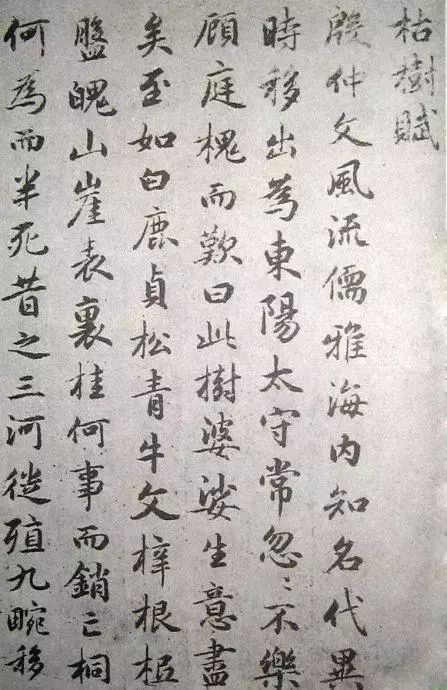 枯樹賦
殷仲文風流儒雅海内知名代異
時移出為東陽太守常忽〻不樂
顧庭槐而歎曰此樹婆娑生意盡
矣至如白鹿貞松青牛文梓根柢
盤魄山崖表裏桂何事而銷亡桐
何為而半死昔之三河徙殖九畹移